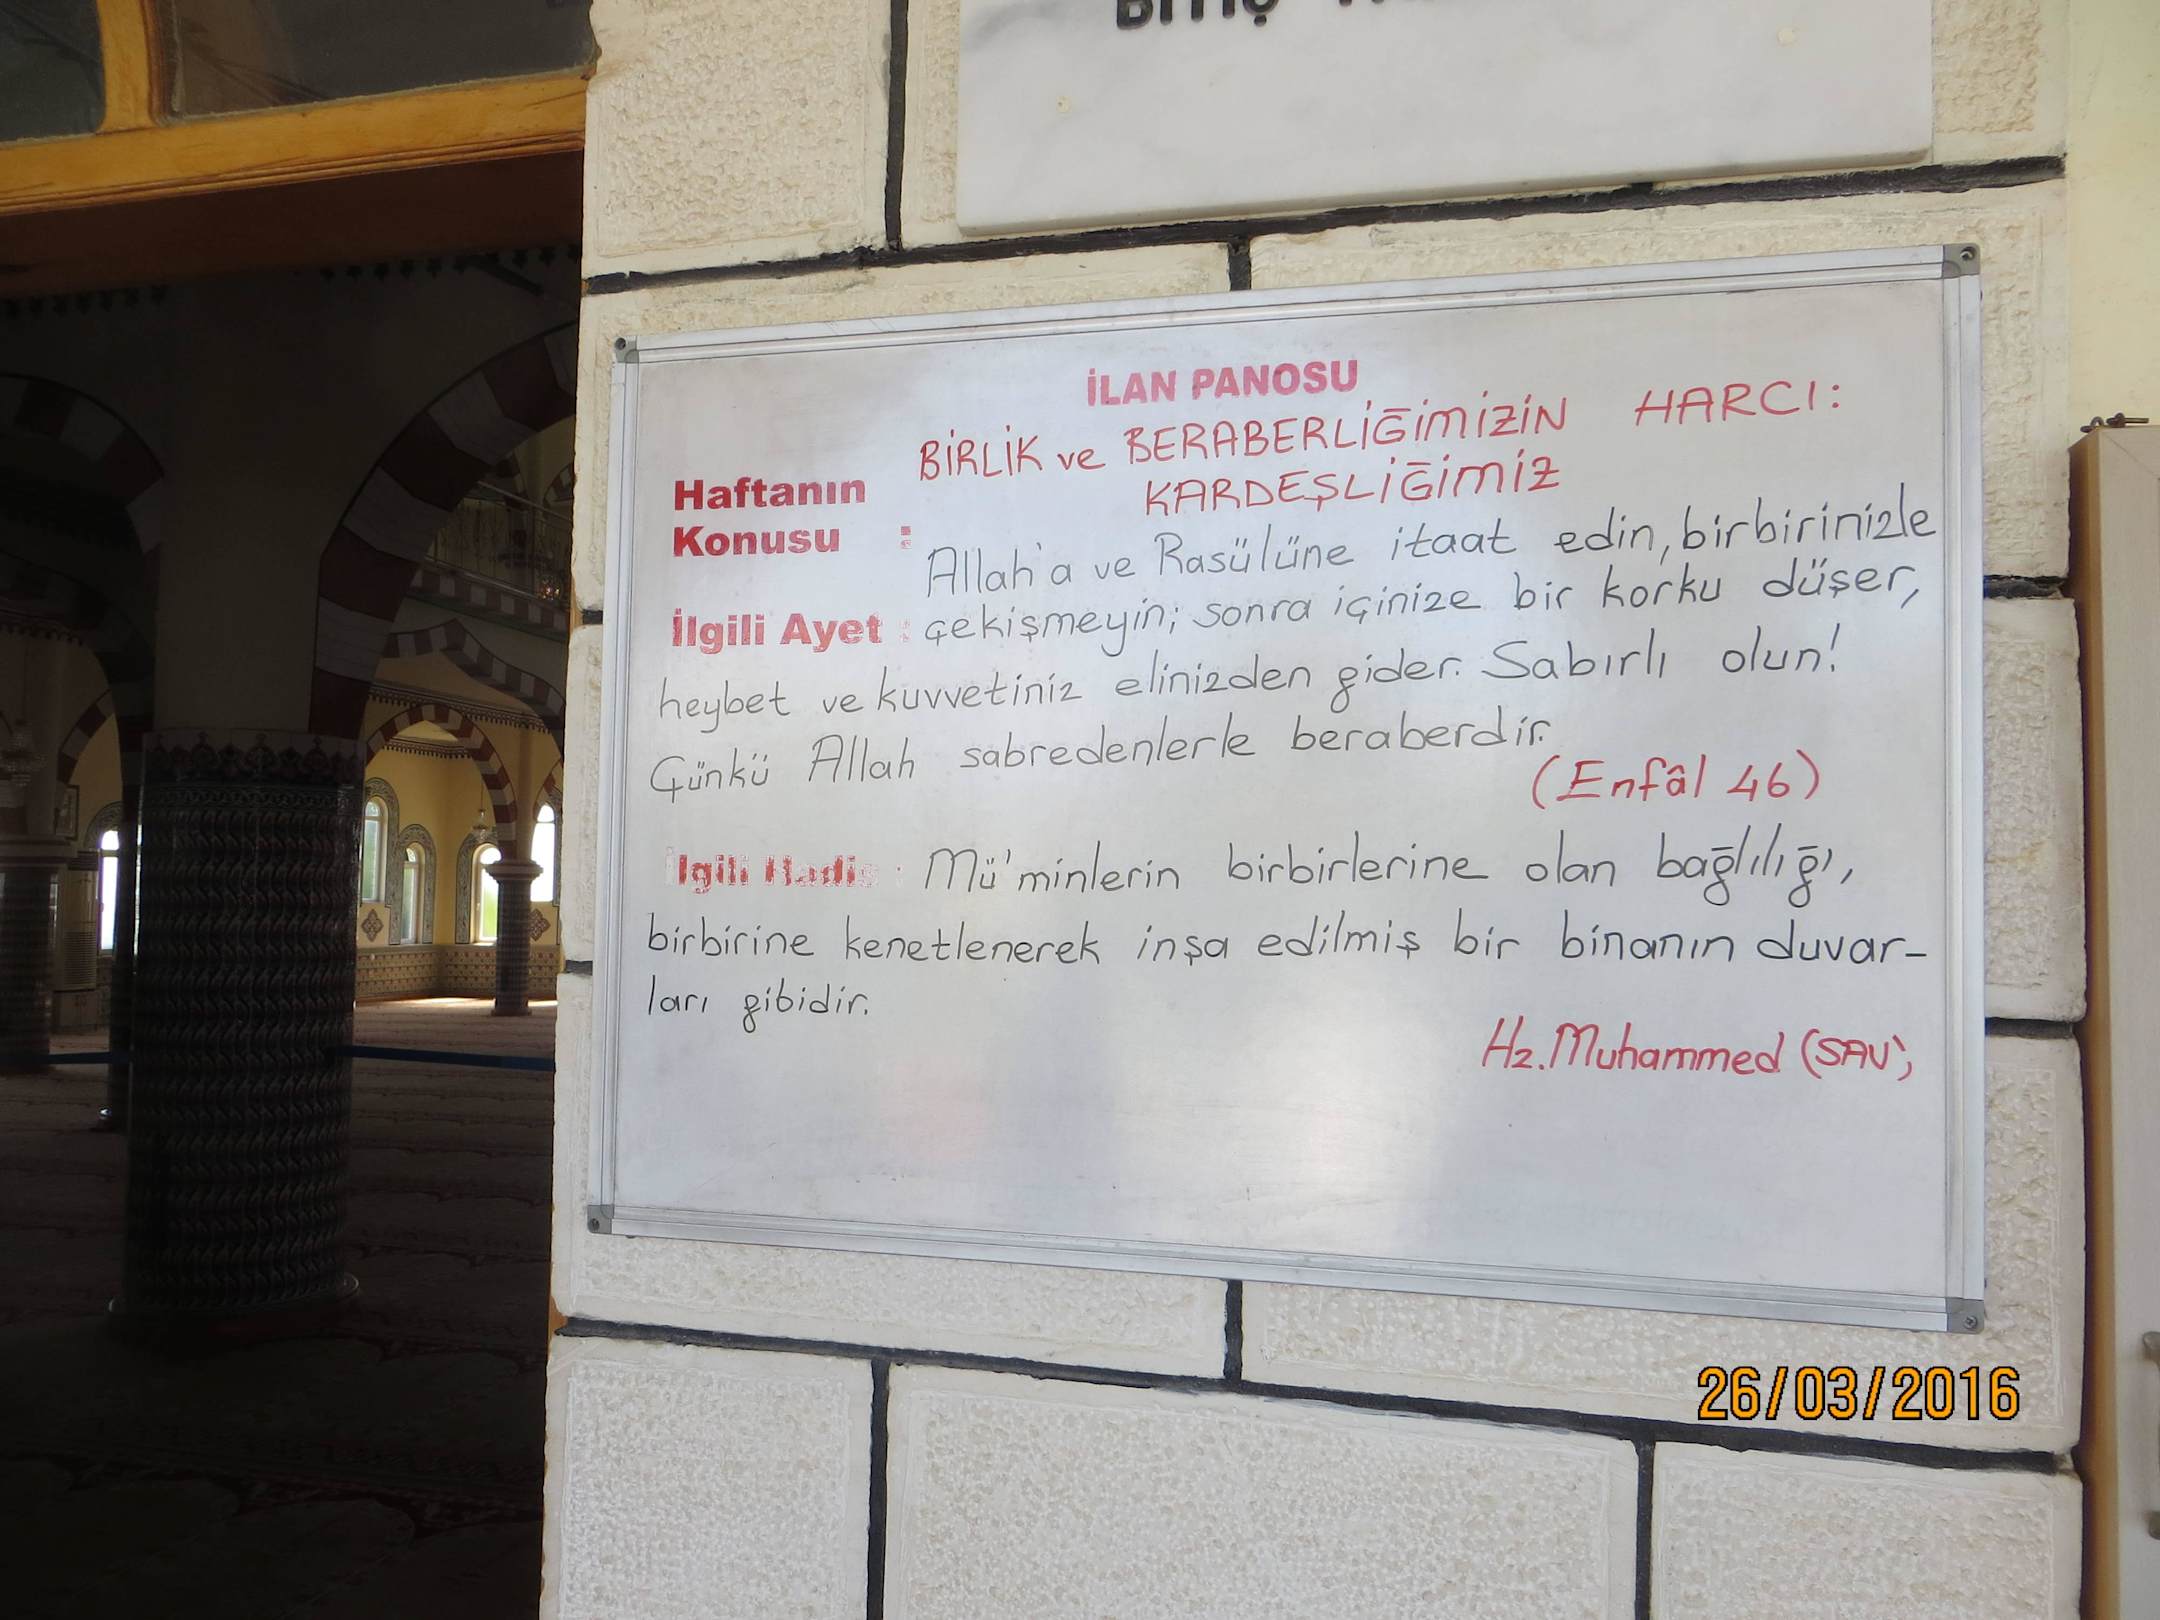 İLAN PANOSU
Haftanın
Konusu :
BİRLİK ve BERABERLİĞİMİZİN HARCI:
KARDEŞLİĞİMİZ
Allah'a ve Rasülüne itaat edin, birbirinizle
İlgili Ayet : çekişmeyin; sonra içinize bir korku düşer,
heybet ve kuvvetiniz elinizden gider. Sabırlı olun!
Çünkü Allah sabredenlerle beraberdir.
(Enfâl 46)
İlgili Hadis : Mü'minlerin birbirlerine olan bağlılığı,
birbirine kenetlenerek inşa edilmiş bir binanın duvar-
ları gibidir.
Hz. Muhammed (SAV)
26/03/2016